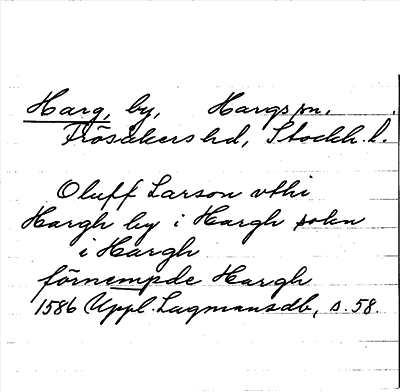 Harg, by, Hargs sn.
Frösåkers hd, Stockh. l.
Oluff Larson vthi
Hargh by i Hargh sokn
i Hargh
förnempde Hargh
1586 Uppl. Lagmansdb, s. 58.